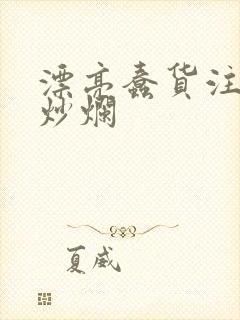 漂亮蠢货注
炒爛
夏威